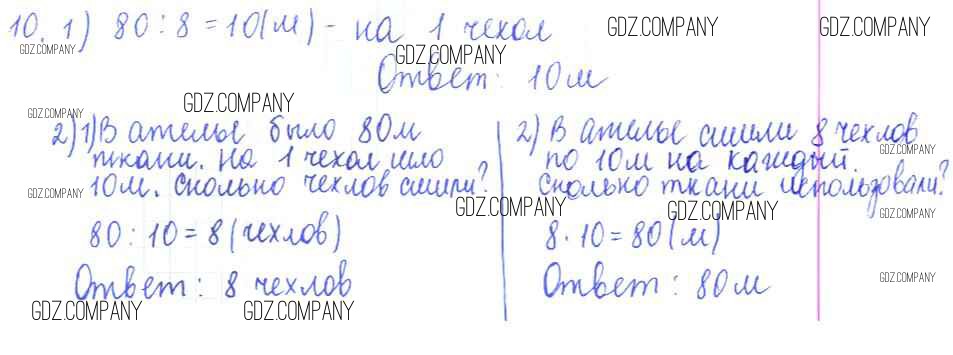 10. 1) 80 : 8 = 10(м) - на 1 чехол
Ответ: 10м
2) 1) В ателье было 80м
ткани. На 1 чехол шло
10м. Сколько чехлов сшили?
80 : 10 = 8 (чехлов)
Ответ: 8 чехлов
2) В ателье сшили 8 чехлов
по 10м на каждый.
Сколько ткани использовали?
8 · 10 = 80 (м)
Ответ: 80м
GDZ.COMPANY
GDZ.COMPANY
GDZ.COMPANY
GDZ.COMPANY
GDZ.COMPANY
GDZ.COMPANY
GDZ.COMPANY
GDZ.COMPANY
GDZ.COMPANY
GDZ.COMPANY
GDZ.COMPANY
GDZ.COMPANY
GDZ.COMPANY
GDZ.COMPANY